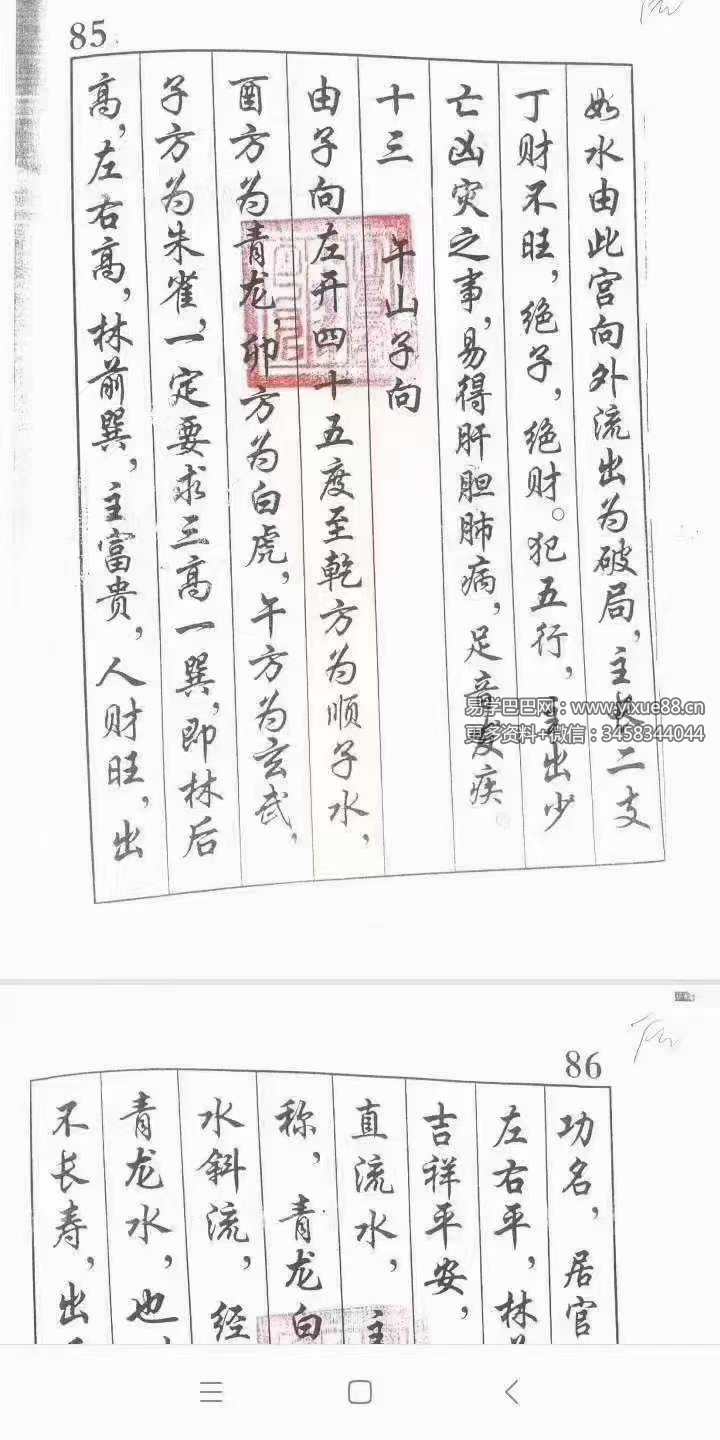 85
如水由此宫向外流出为破局，主长二支
丁财不旺，绝子，绝财。犯五行，主出少
亡凶灾之事，易得肝胆肺病，足音发疾。
十三 午山子向
由子向左开四十五度至乾方为顺子水，
酉方为青龙，卯方为白虎，午方为玄武，
子方为朱雀，一定要求三高一巽，即林后
高，左右高，林前巽，主富贵，人财旺，出
易学巴巴网：www.yixue88.cn
更多资料+微信：3458344044
86
功名，居官
左右平，林
吉祥平安，
直流水，主
称，青龙白
水斜流，经
青龙水，也
不长寿，出